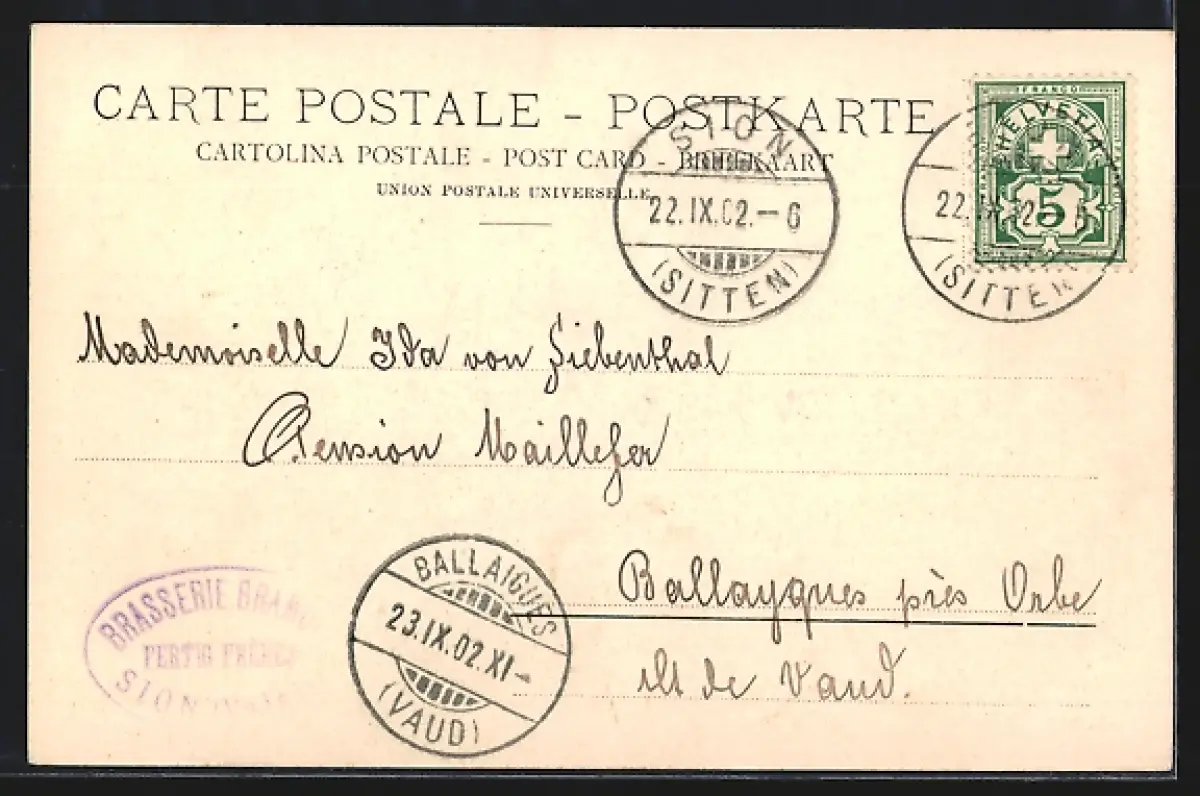 CARTE POSTALE – POSTKARTE
CARTOLINA POSTALE - POST CARD - BRIEFKAART
UNION POSTALE UNIVERSELLE
SION
22.IX.02.–6
(SITTEN)
FRANCO
HELVETIA
5
22.IX.
(SITTEN
Mademoiselle Ida von Siebenthal
Pension Maillefer
Ballaygues près Orbe
ct de Vaud.
BALLAIGUES
23.IX.02.XI–
(VAUD)
BRASSERIE
FERTIG FRÈRES
SION